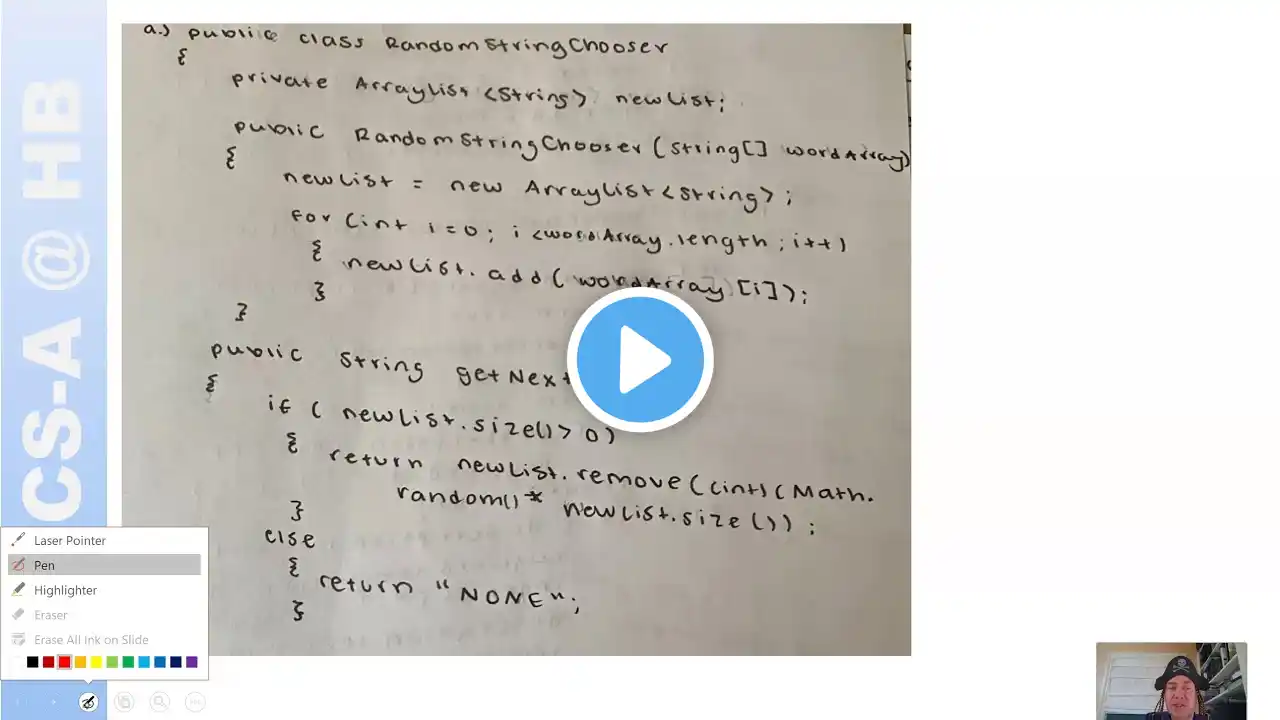 CS-A @ HB
a.) public class RandomStringChooser
{
private ArrayList <String> newList;
public RandomStringChooser (String[] wordArray)
{
newList = new ArrayList <String>;
for (int i=0; i <wordArray.length ; i++)
{ newList. add ( wordArray) [i]);
}
}
public String getNex
{
if ( newList.size()> 0)
{ return newList. remove ((int) (Math.
random() * newList.size ());
}
else
{ return "NONE";
}
Laser Pointer
Pen
Highlighter
Eraser
Erase All Ink on Slide